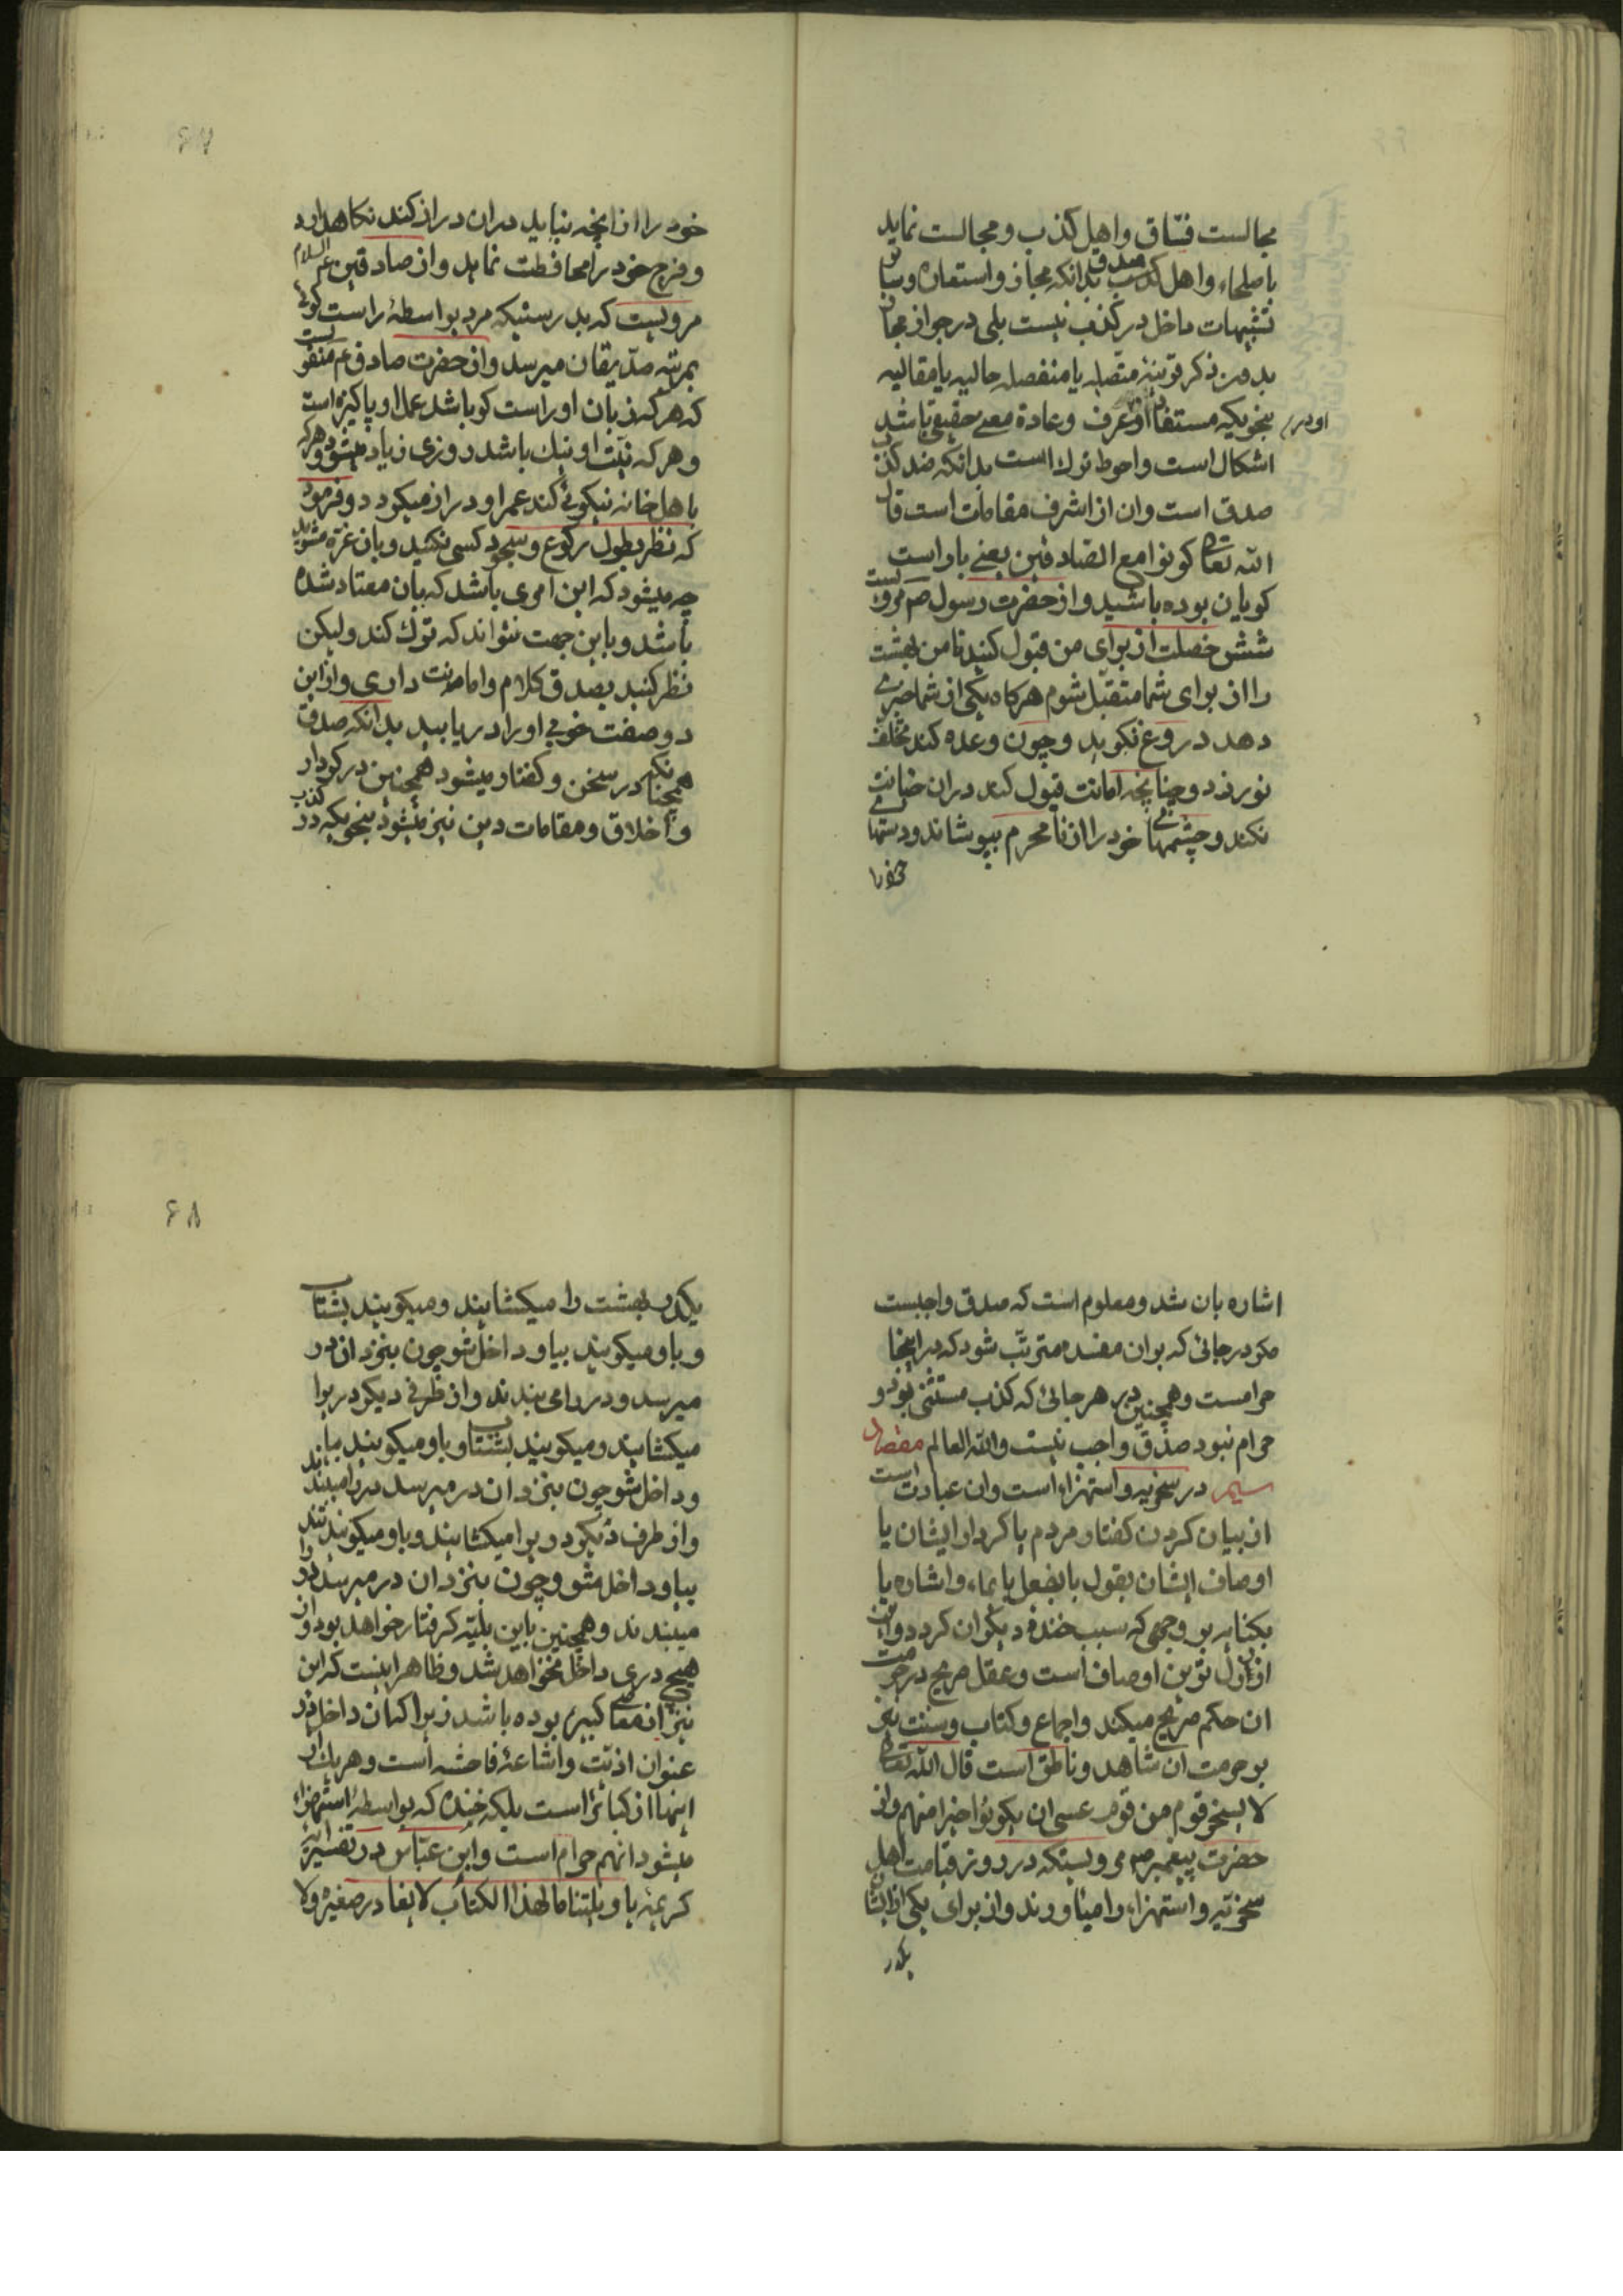 مجالست فسّاق واهل كذب و مجالست نمايد
با صلحاء واهل صدق بدانكه مجاز و استعاره و سائر
تشبيهات داخل در كذب نيست بلى در جواز مجاز
بدون ذكر قرينهٔ متّصله يا منفصله حاليه يا مقاليه
بنحويكه مستفاد از او در عرف وعادة معنى حقيقى باشد
اشكال است واحوط ترك است بدانكه ضد كذب
صدق است وان از اشرف مقامات است قال
الله تعالى كونوا مع الصّادقين يعنى با راست
كويان بوده باشيد و از حضرت رسول ص مرويست
شش خصلت از براى من قبول كنيد تا من بهشت
را از براى شما متقبّل شوم هركاه يكى از شما خبرى
دهد دروغ نكويد و چون وعده كند تخلف
نورزد و چنانچه امانت قبول كند در ان خيانت
نكند و چشمهاى خود را از نا محرم بپوشاند و دستهاى
خود را
۶۷
خود را از انچه نبايد دران دراز كند نكاهدارد
و فرج خود را محافظت نمايد و از صادقين عليهم السلام
مرويست كه بدرستيكه مرد بواسطهٔ راست كوئى
بمرتبه صدّيقان ميرسد و از حضرت صادق ع منقولست
كه هركه زبان او راست كو باشد عمل او پاكيزه است
و هركه نيّت او نيك باشد روزى زياد ميشود و هركه
باهل خانه نيكوئى كند عمر او دراز ميكردد و فرمود
كه نظر بطول ركوع و سجود كسى نكنيد و بان غرّه مشويد
چه ميشود كه اين امرى باشد كه بان معتاد شده
باشد و باين جهت نتواند كه ترك كند وليكن
نظر كنيد بصدق كلام و امانت دارى و از اين
دو صفت خوبى او را دريابيد بدانكه صدق
همچنانكه در سخن و كفتار ميشود همچنين در كردار
و اخلاق و مقامات دين نيز ميشود بنحويكه در كذب
اشاره بان شد و معلوم است كه صدق واجبست
مكر در جائى كه بر ان مفسده مترتّب شود كه در اينجا
حرامست و همچنين در هر جائى كه كذب مستثنى بود و
حرام نبود صدق واجب نيست والله العالم مفصد
سيم در سخريه و استهزاء است وان عبارت است
از بيان كردن كفتار مردم يا كردار ايشان يا
اوصاف ايشان بقول يا بفعل يا بايماء و اشاره يا
بكنايه بر وجهى كه سبب خنده ديكران كردد و اين
از ارذل ترين اوصاف است و عقل صريح در حرمت
ان حكم صريح ميكند و اجماع و كتاب و سنت نيز
بر حرمت ان شاهد و ناطق است قال الله تعالى
لا يسخر قوم من قوم عسى ان يكونوا خيرا منهم و از
حضرت پيغمبر ص مرويستكه در روز قيامت اهل
سخريّه و استهزاء را مياورند و از براى يكى از ايشان
يكدر
۶۸
يكدر بهشت را ميكشايند و ميكويند بشتاب
و باو ميكويند بيا و داخل شو چون بنزد ان در
ميرسد در را مى بندند و از طرفى ديكر در را
ميكشايند و ميكويند بشتاب و باو ميكويند بيا
و داخل شو چون بنزد ان در ميرسد در را ميبندند
و از طرف ديكر در را ميكشايند و باو ميكويند تند
بيا و داخل شو و چون بنزد ان در ميرسد در را
ميبندند و همچنين باين بليّه كرفتار خواهد بود و از
هيچ درى داخل نخواهد شد و ظاهر اينست كه اين
نيز از معاصى كبيره بوده باشد زيرا كه ان داخل در
عنوان اذيّت و اشاعهٔ فاحشه است و هر يك از
اينها از كبائر است بلكه خنده كه بواسطهٔ استهزاء
ميشود انهم حرام است و ابن عبّاس در تفسير آيهٔ
كريمهٔ يا ويلتنا ما لهذا الكتاب لا يغادر صغيرة ولا